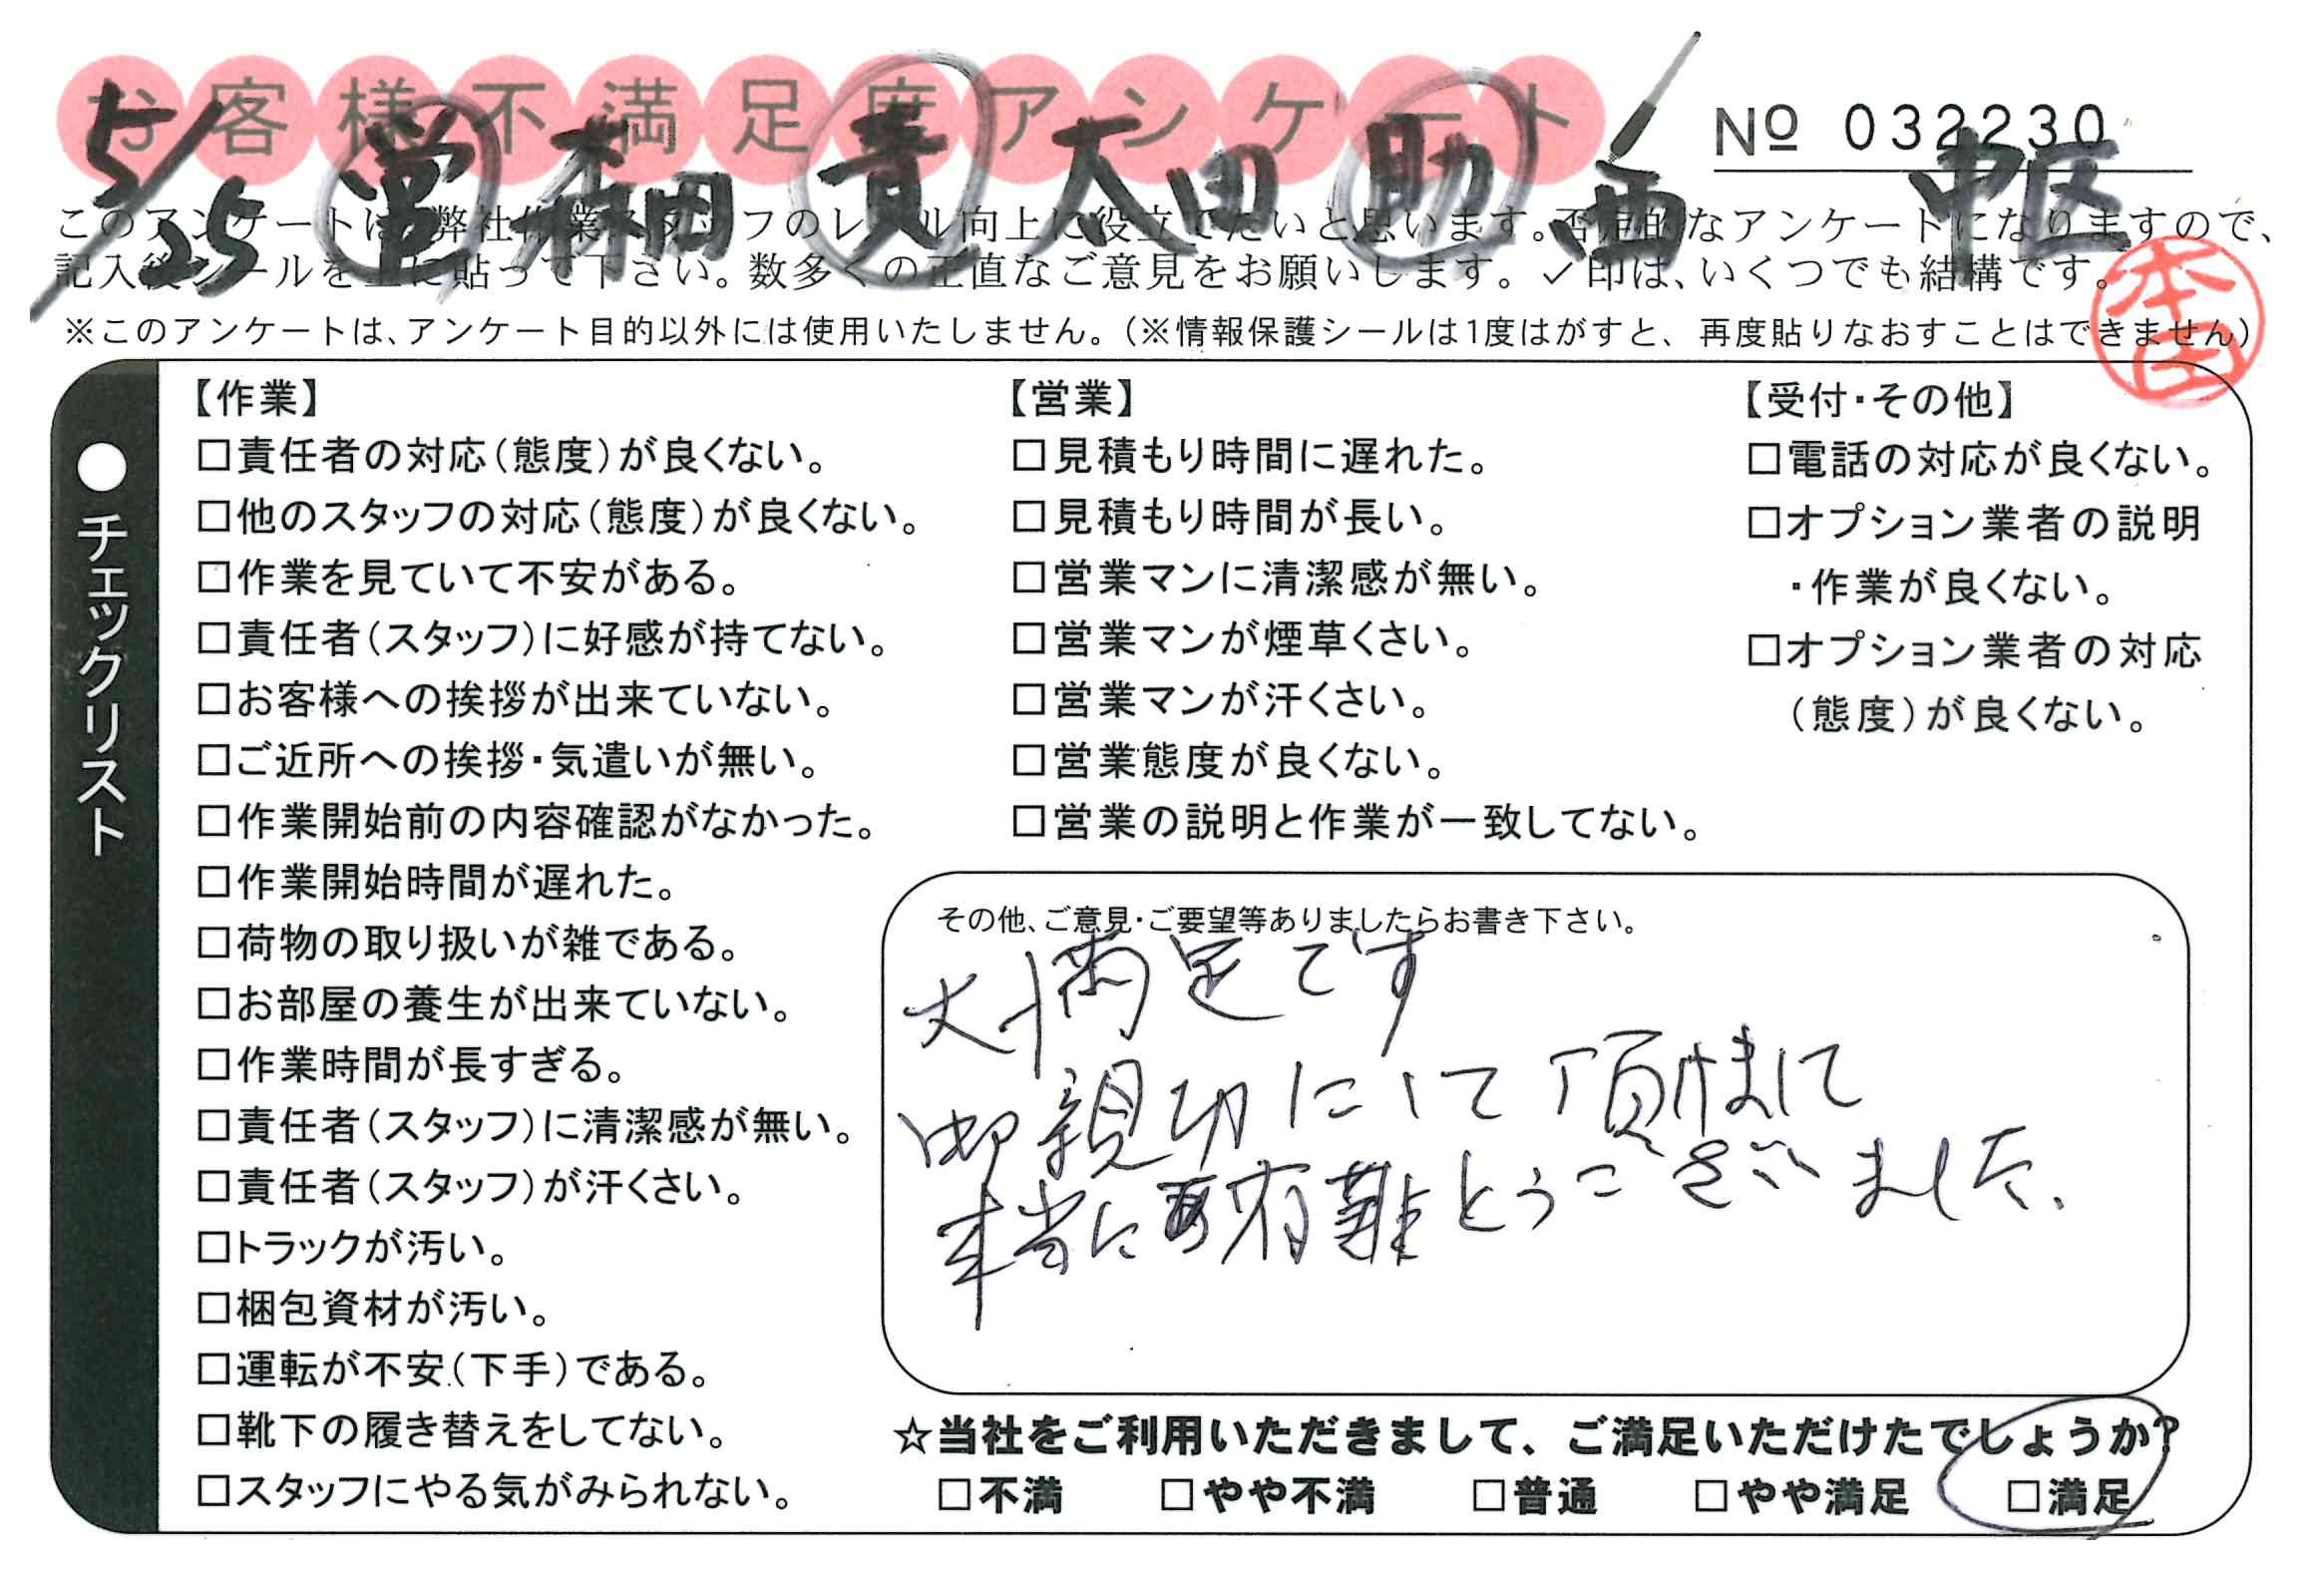 お客様不満足度アンケート
№ 032230
5/25 営 本田 責 太田 助 西 中区
このアンケートは、弊社作業スタッフのレベル向上に役立てたいと思います。否定的なアンケートになりますので、
記入後シールを上に貼って下さい。数多くの正直なご意見をお願いします。✓印は、いくつでも結構です。
※このアンケートは、アンケート目的以外には使用いたしません。（※情報保護シールは1度はがすと、再度貼りなおすことはできません）
本田
●チェックリスト
【作業】
□責任者の対応（態度）が良くない。
□他のスタッフの対応（態度）が良くない。
□作業を見ていて不安がある。
□責任者（スタッフ）に好感が持てない。
□お客様への挨拶が出来ていない。
□ご近所への挨拶・気遣いが無い。
□作業開始前の内容確認がなかった。
□作業開始時間が遅れた。
□荷物の取り扱いが雑である。
□お部屋の養生が出来ていない。
□作業時間が長すぎる。
□責任者（スタッフ）に清潔感が無い。
□責任者（スタッフ）が汗くさい。
□トラックが汚い。
□梱包資材が汚い。
□運転が不安（下手）である。
□靴下の履き替えをしてない。
□スタッフにやる気がみられない。
【営業】
□見積もり時間に遅れた。
□見積もり時間が長い。
□営業マンに清潔感が無い。
□営業マンが煙草くさい。
□営業マンが汗くさい。
□営業態度が良くない。
□営業の説明と作業が一致してない。
【受付・その他】
□電話の対応が良くない。
□オプション業者の説明
・作業が良くない。
□オプション業者の対応
（態度）が良くない。
その他、ご意見・ご要望等ありましたらお書き下さい。
大満足です
御親切にして頂けまして
本当に有難とうございました、
☆当社をご利用いただきまして、ご満足いただけたでしょうか？
□不満 □やや不満 □普通 □やや満足 □満足